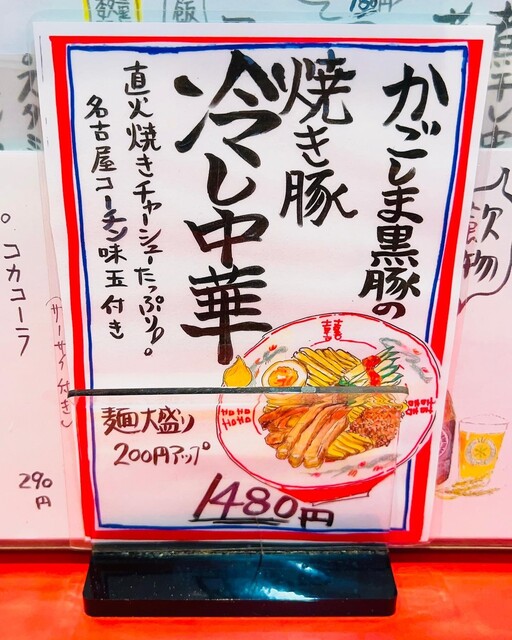 かごしま黒豚の
焼き豚
冷し中華
直火焼きチャーシューたっぷり。
名古屋コーチン味玉付き
麺大盛り
200円アップ
1480円
飲物
コカコーラ
290
円